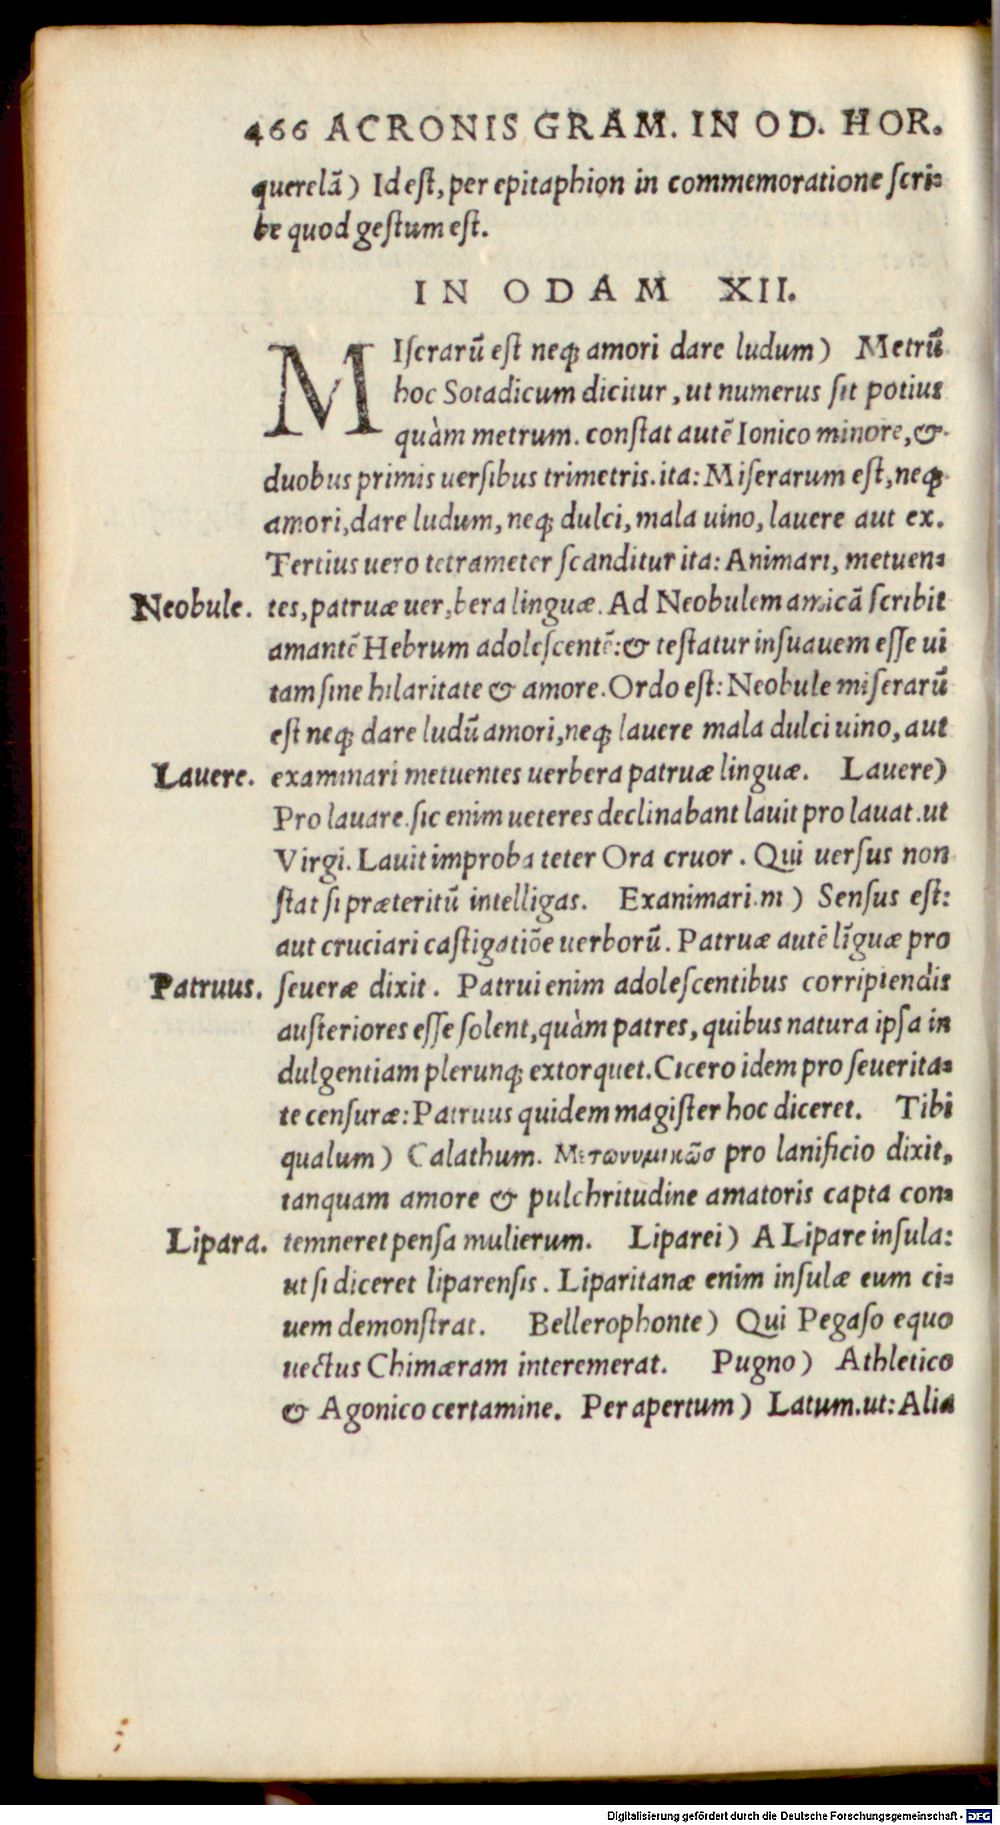 466 ACRONIS GRAM. IN OD. HOR.
querelã) Id est, per epitaphion in commemoratione scri-
be quod gestum est.
IN ODAM XII.
MIserarũ est neqꝫ amori dare ludum) Metrũ
hoc Sotadicum dicitur, ut numerus sit potius
quàm metrum. constat autẽ Ionico minore, &
duobus primis uersibus trimetris. ita: Miserarum est, neqꝫ
amori, dare ludum, neqꝫ dulci, mala uino, lauere aut ex.
Tertius uero tetrameter scanditur ita: Animari, metuen-
Neobule. tes, patruæ uer, bera linguæ. Ad Neobulem amicã scribit
amantẽ Hebrum adolescentẽ: & testatur insuauem esse ui
tam sine hilaritate & amore. Ordo est: Neobule miserarũ
est neqꝫ dare ludũ amori, neqꝫ lauere mala dulci uino, aut
Lauere. examinari metuentes uerbera patruæ linguæ. Lauere)
Pro lauare. sic enim ueteres declinabant lauit pro lauat. ut
Virgi. Lauit improba teter Ora cruor. Qui uersus non
stat si præteritũ intelligas. Exanimari.m) Sensus est:
aut cruciari castigatiõe uerborũ. Patruæ autẽ lĩguæ pro
Patruus. seueræ dixit. Patrui enim adolescentibus corripiendis
austeriores esse solent, quàm patres, quibus natura ipsa in
dulgentiam plerunqꝫ extorquet. Cicero idem pro seuerita-
te censuræ: Patruus quidem magister hoc diceret. Tibi
qualum) Calathum. Μετωνυμικῶσ pro lanificio dixit,
tanquam amore & pulchritudine amatoris capta con-
Lipara. temneret pensa mulierum. Liparei) A Lipare insula:
ut si diceret liparensis. Liparitanæ enim insulæ eum ci-
uem demonstrat. Bellerophonte) Qui Pegaso equo
uectus Chimæram interemerat. Pugno) Athletico
& Agonico certamine. Per apertum) Latum. ut: Alia
Digitalisierung gefördert durch die Deutsche Forschungsgemeinschaft - DFG